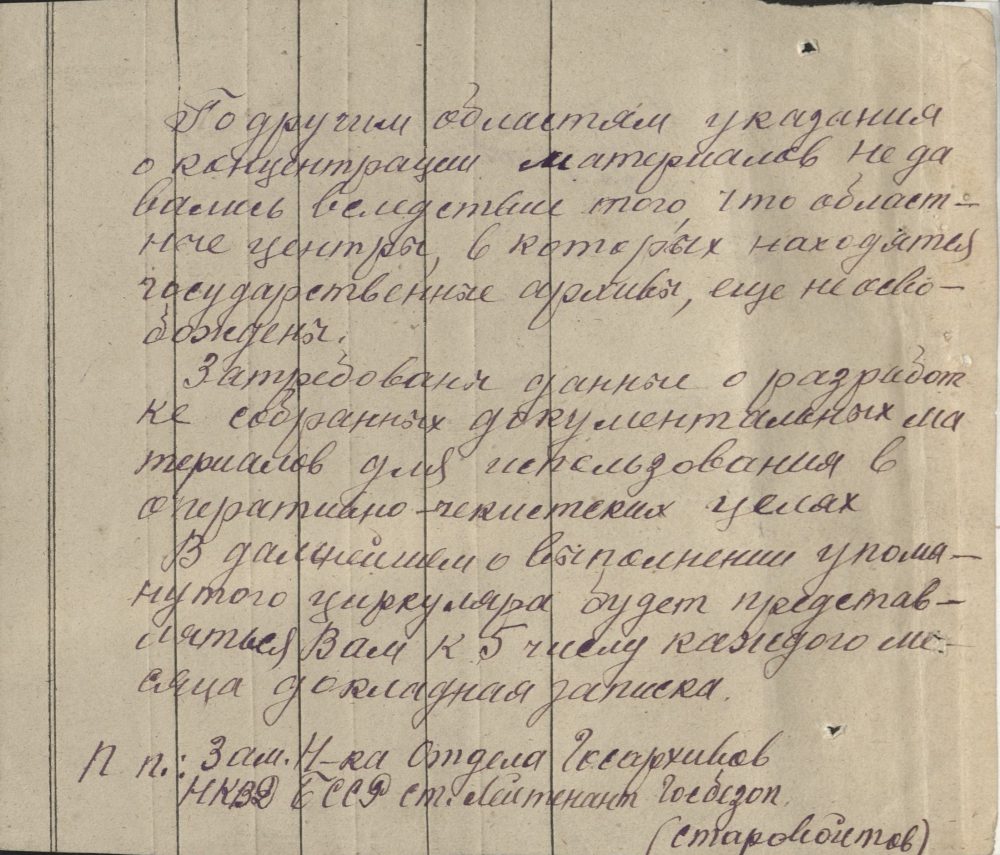 По другим областям указания
о концентрации материалов не да
вались вследствие того, что област-
ные центры, в которых находятся
государственные архивы, еще не осво-
бождены.
Затребованы данные о разработ
ке собранных документальных ма
териалов для использования в
оперативно-чекистских целях
В дальнейшем о выполнении упомя-
нутого циркуляра будет представ-
ляться Вам к 5 числу каждого ме-
сяца докладная записка.
П п.: Зам. Н-ка Отдела Госархивов
НКВД БССР ст. Лейтенант Госбезоп.
(Старовойтов)